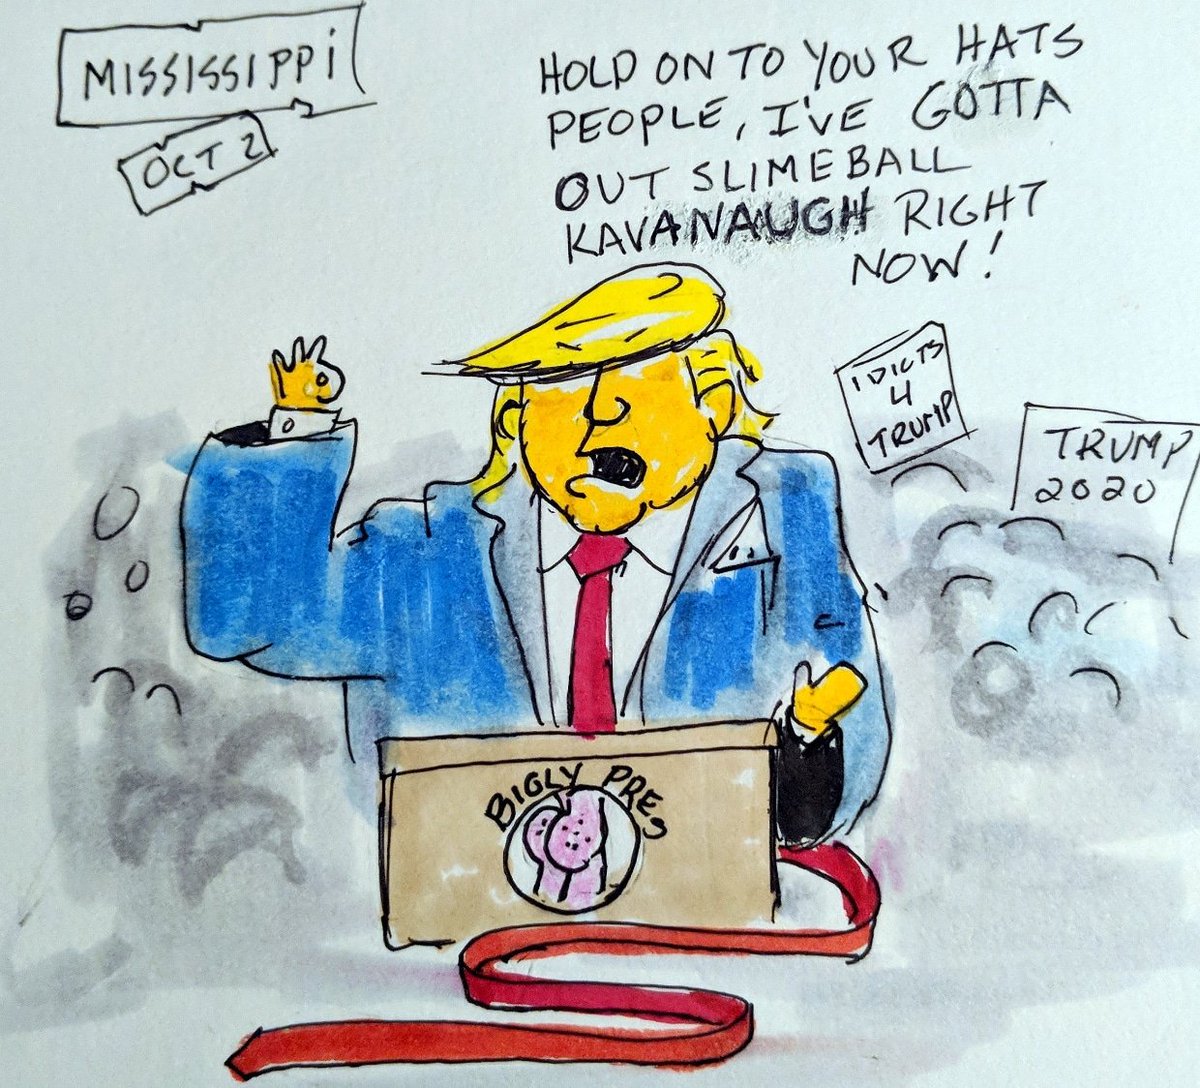 MISSISSIPPI
OCT 2
HOLD ON TO YOUR HATS
PEOPLE, I'VE GOTTA
OUT SLIMEBALL
KAVANAUGH RIGHT
NOW!
IDIOTS
4
TRUMP
TRUMP
2020
BIGLY PRES